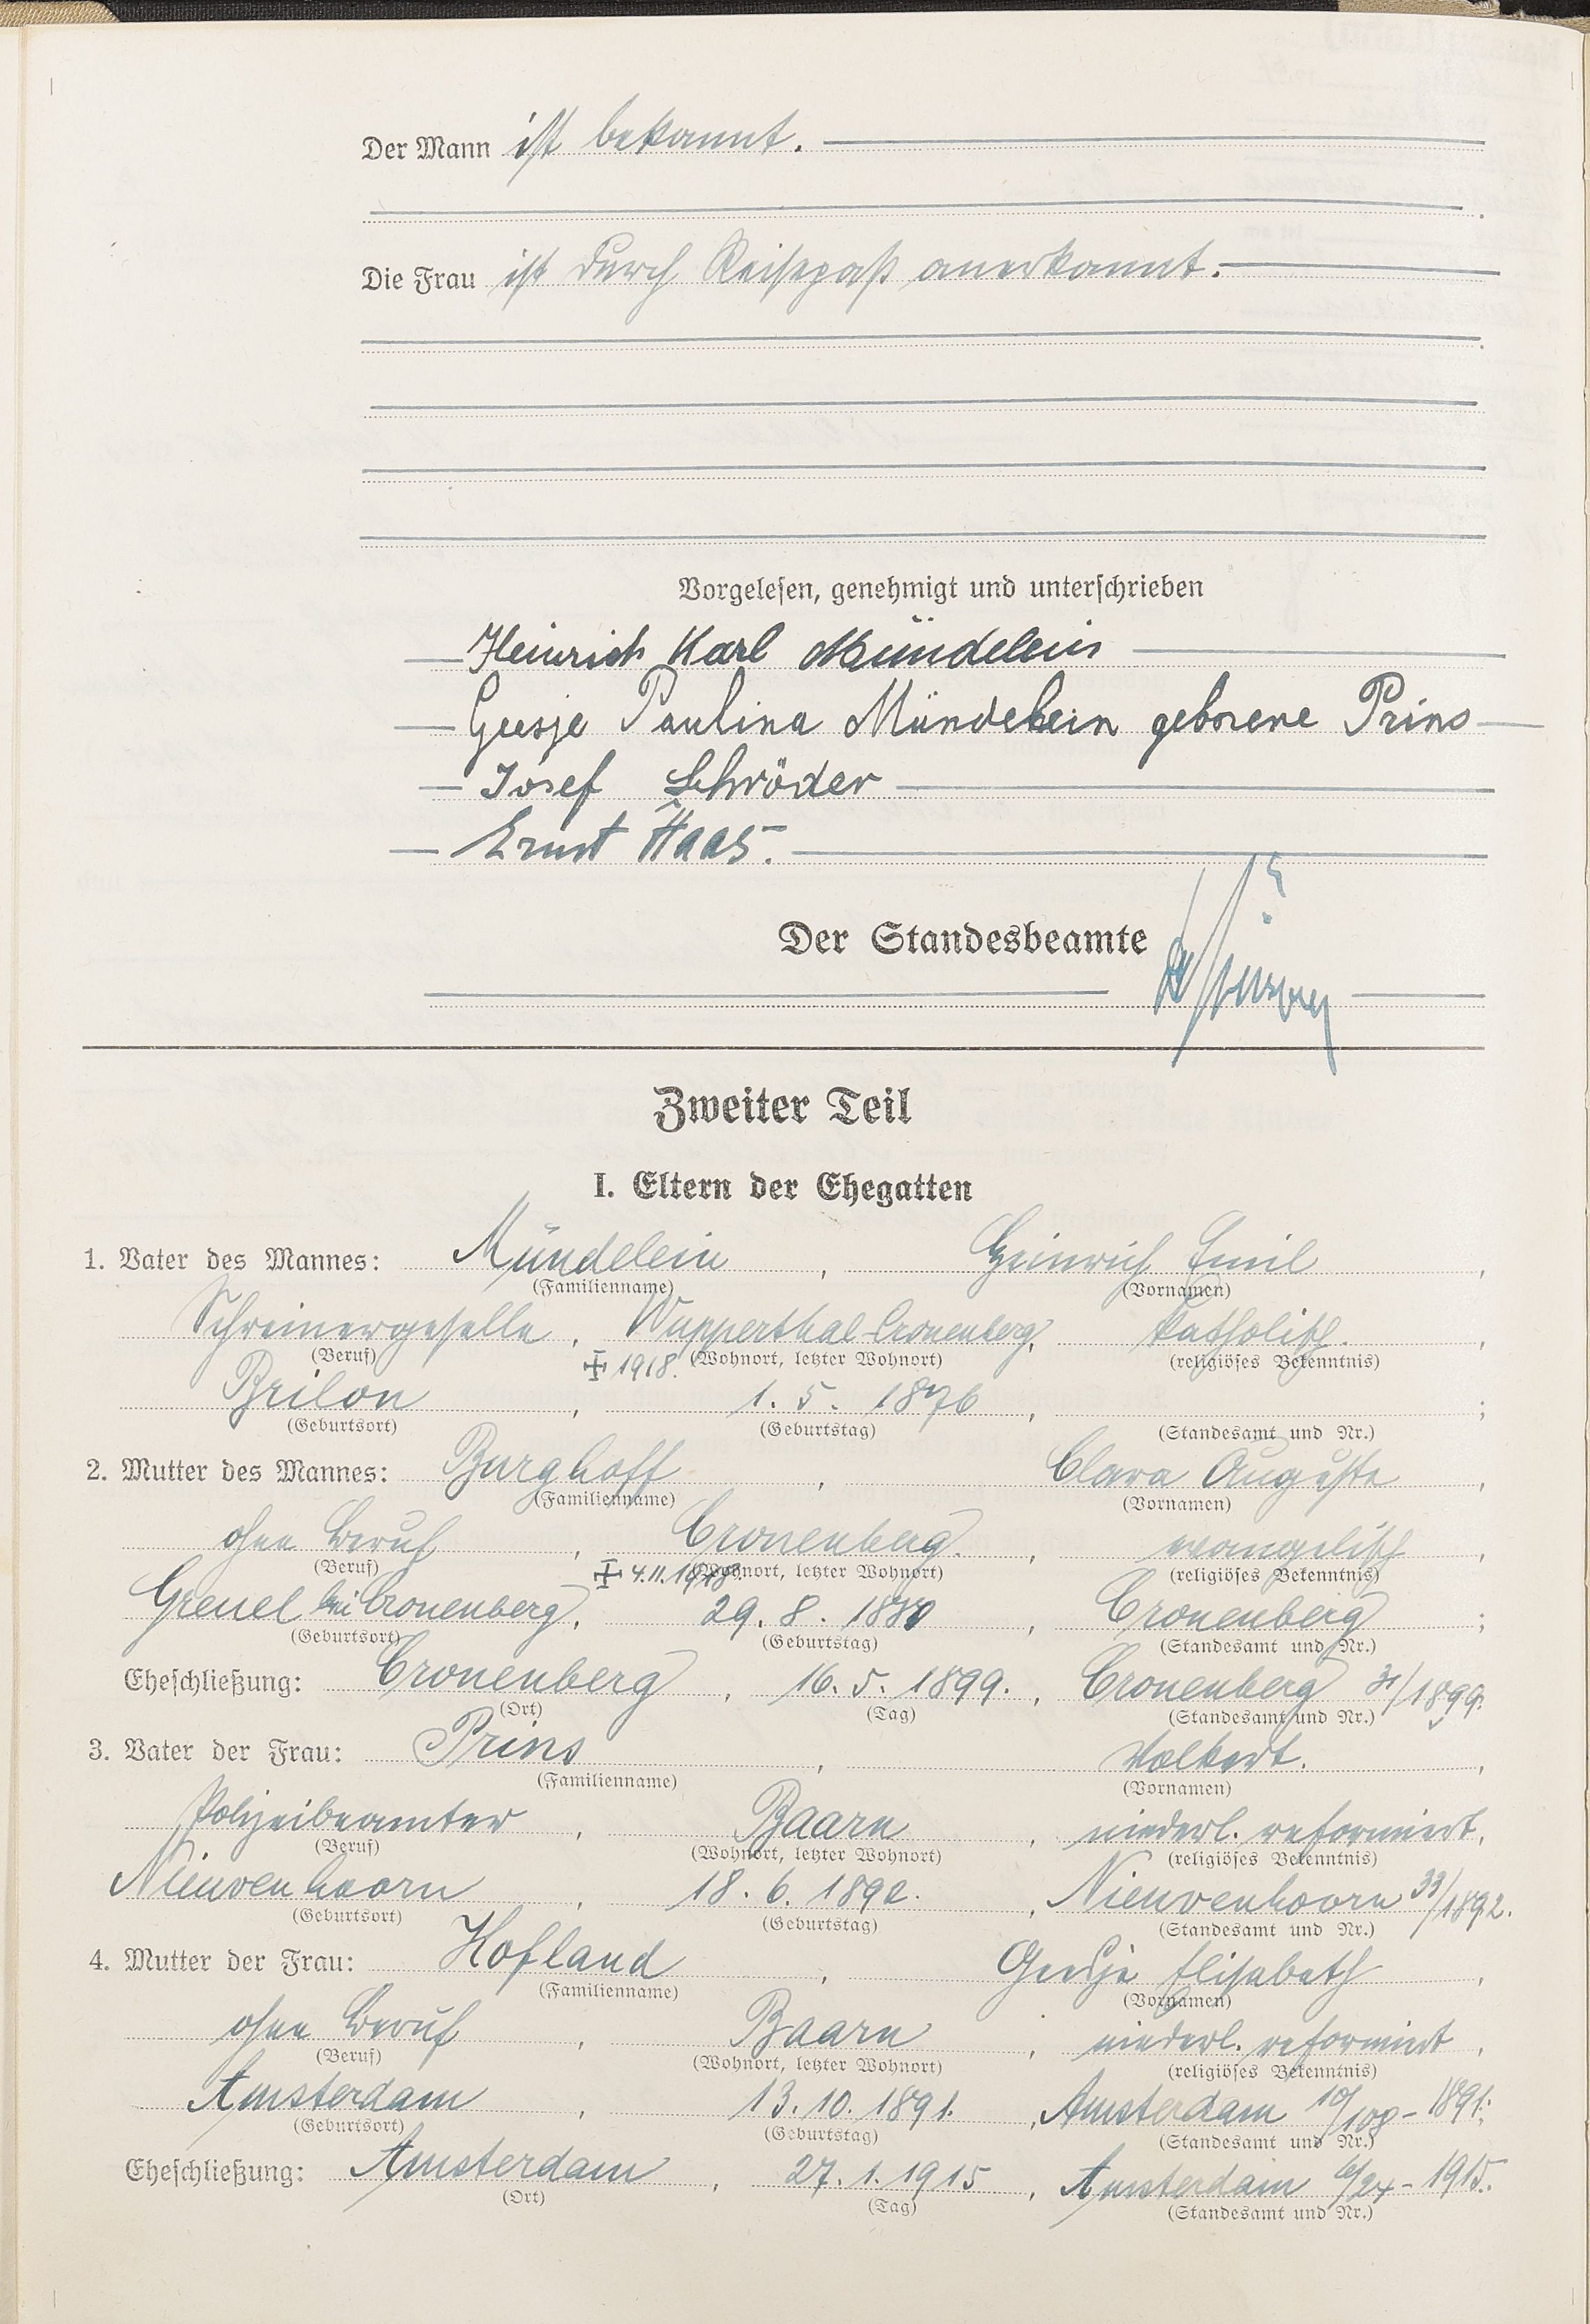 Der Mann ist bekannt.
Die Frau ist durch Reisepaß anerkannt.
Vorgelesen, genehmigt und unterschrieben
Heinrich Karl Mündelein
Geesje Paulina Mündelein geborene Prins
Josef Schröder
Ernst Haas.
Der Standesbeamte
Zweiter Teil
I. Eltern der Ehegatten
1. Vater des Mannes: Mündelein, Heinrich Emil,
(Familienname) (Vornamen)
Schreinergeselle, Wupperthal-Cronenberg, katholisch.,
(Beruf) (Wohnort, letzter Wohnort) (religiöses Bekenntnis)
1918.
Brilon, 1. 5. 1876,
(Geburtsort) (Geburtstag) (Standesamt und Nr.)
2. Mutter des Mannes: Burghoff, Clara Auguste,
(Familienname) (Vornamen)
ohne Beruf, Cronenberg., evangelisch,
(Beruf) (Wohnort, letzter Wohnort) (religiöses Bekenntnis)
4.11.
Greuel bei Cronenberg, 29. 8. , Cronenberg;
(Geburtsort) (Geburtstag) (Standesamt und Nr.)
Eheschließung: Cronenberg, 16. 5. 1899., Cronenberg 31/1899.
(Ort) (Tag) (Standesamt und Nr.)
3. Vater der Frau: Prins, Volkert.,
(Familienname) (Vornamen)
Polizeibeamter, Baarn, niederl. reformiert,
(Beruf) (Wohnort, letzter Wohnort) (religiöses Bekenntnis)
Nieuwenhoorn, 18. 6. 1892., Nieuwenhoorn 33/1892.
(Geburtsort) (Geburtstag) (Standesamt und Nr.)
4. Mutter der Frau: Hofland, Geesje Elisabeth,
(Familienname) (Vornamen)
ohne Beruf, Baarn, niederl. reformiert,
(Beruf) (Wohnort, letzter Wohnort) (religiöses Bekenntnis)
Amsterdam, 13. 10. 1891., Amsterdam 10/108 - 1891;
(Geburtsort) (Geburtstag) (Standesamt und Nr.)
Eheschließung: Amsterdam, 27. 1. 1915, Amsterdam 6/24 - 1915.
(Ort) (Tag) (Standesamt und Nr.)